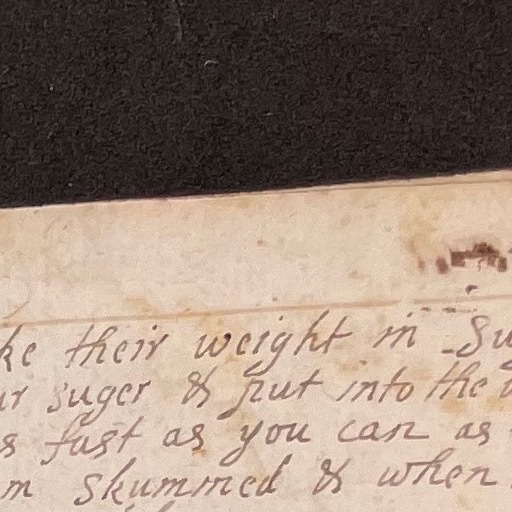 ke their weight in Su
ur suger & put into the
s fast as you can as
m skummed & when